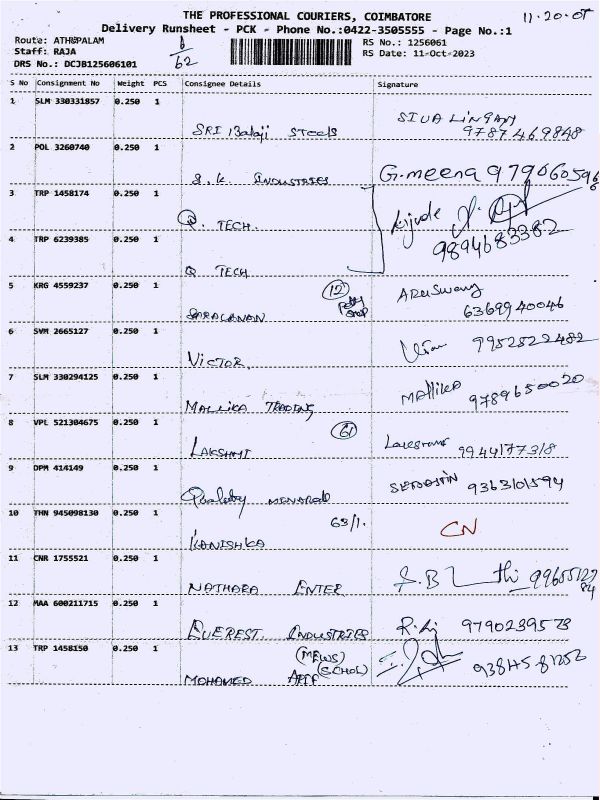 THE PROFESSIONAL COURIERS, COIMBATORE
11.20.
Delivery Runsheet - PCK - Phone No.:0422-3505555 - Page No.:1
Route: ATHIPALAM
Staff: RAJA
DRS No.: DCJB125606101
6/62
RS No.: 1256061
RS Date: 11-Oct-2023
S No Consignment No Weight PCS Consignee Details Signature
1 SLM 330331857 0.250 1
SRI Balaji Steels
SIVA LINGAM
9787469848
2 POL 3260740 0.250 1
S.K. INDUSTRIES
G.meena
3 TRP 1458174 0.250 1
Q. TECH.
9894683382
4 TRP 6239385 0.250 1
Q TECH
5 KRG 4559237 0.250 1
SARAVANAN
12
6369940046
6 SVM 2665127 0.250 1
VICTOR.
9952522482
7 SLM 330294125 0.250 1
MALLIKA TRADING
Mallika
9789650020
8 VPL 521304675 0.250 1
LAKSHMI
61
9944177318
9 DPM 414149 0.250 1
Quality
9363101594
10 THN 945098130 0.250 1
KANISHKA
63/1.
CN
11 CNR 1755521 0.250 1
NATHARA ENTER
12 MAA 600211715 0.250 1
EVEREST. INDUSTRIES
9790239573
13 TRP 1458150 0.250 1
MOHAMED ARIF
9384581252